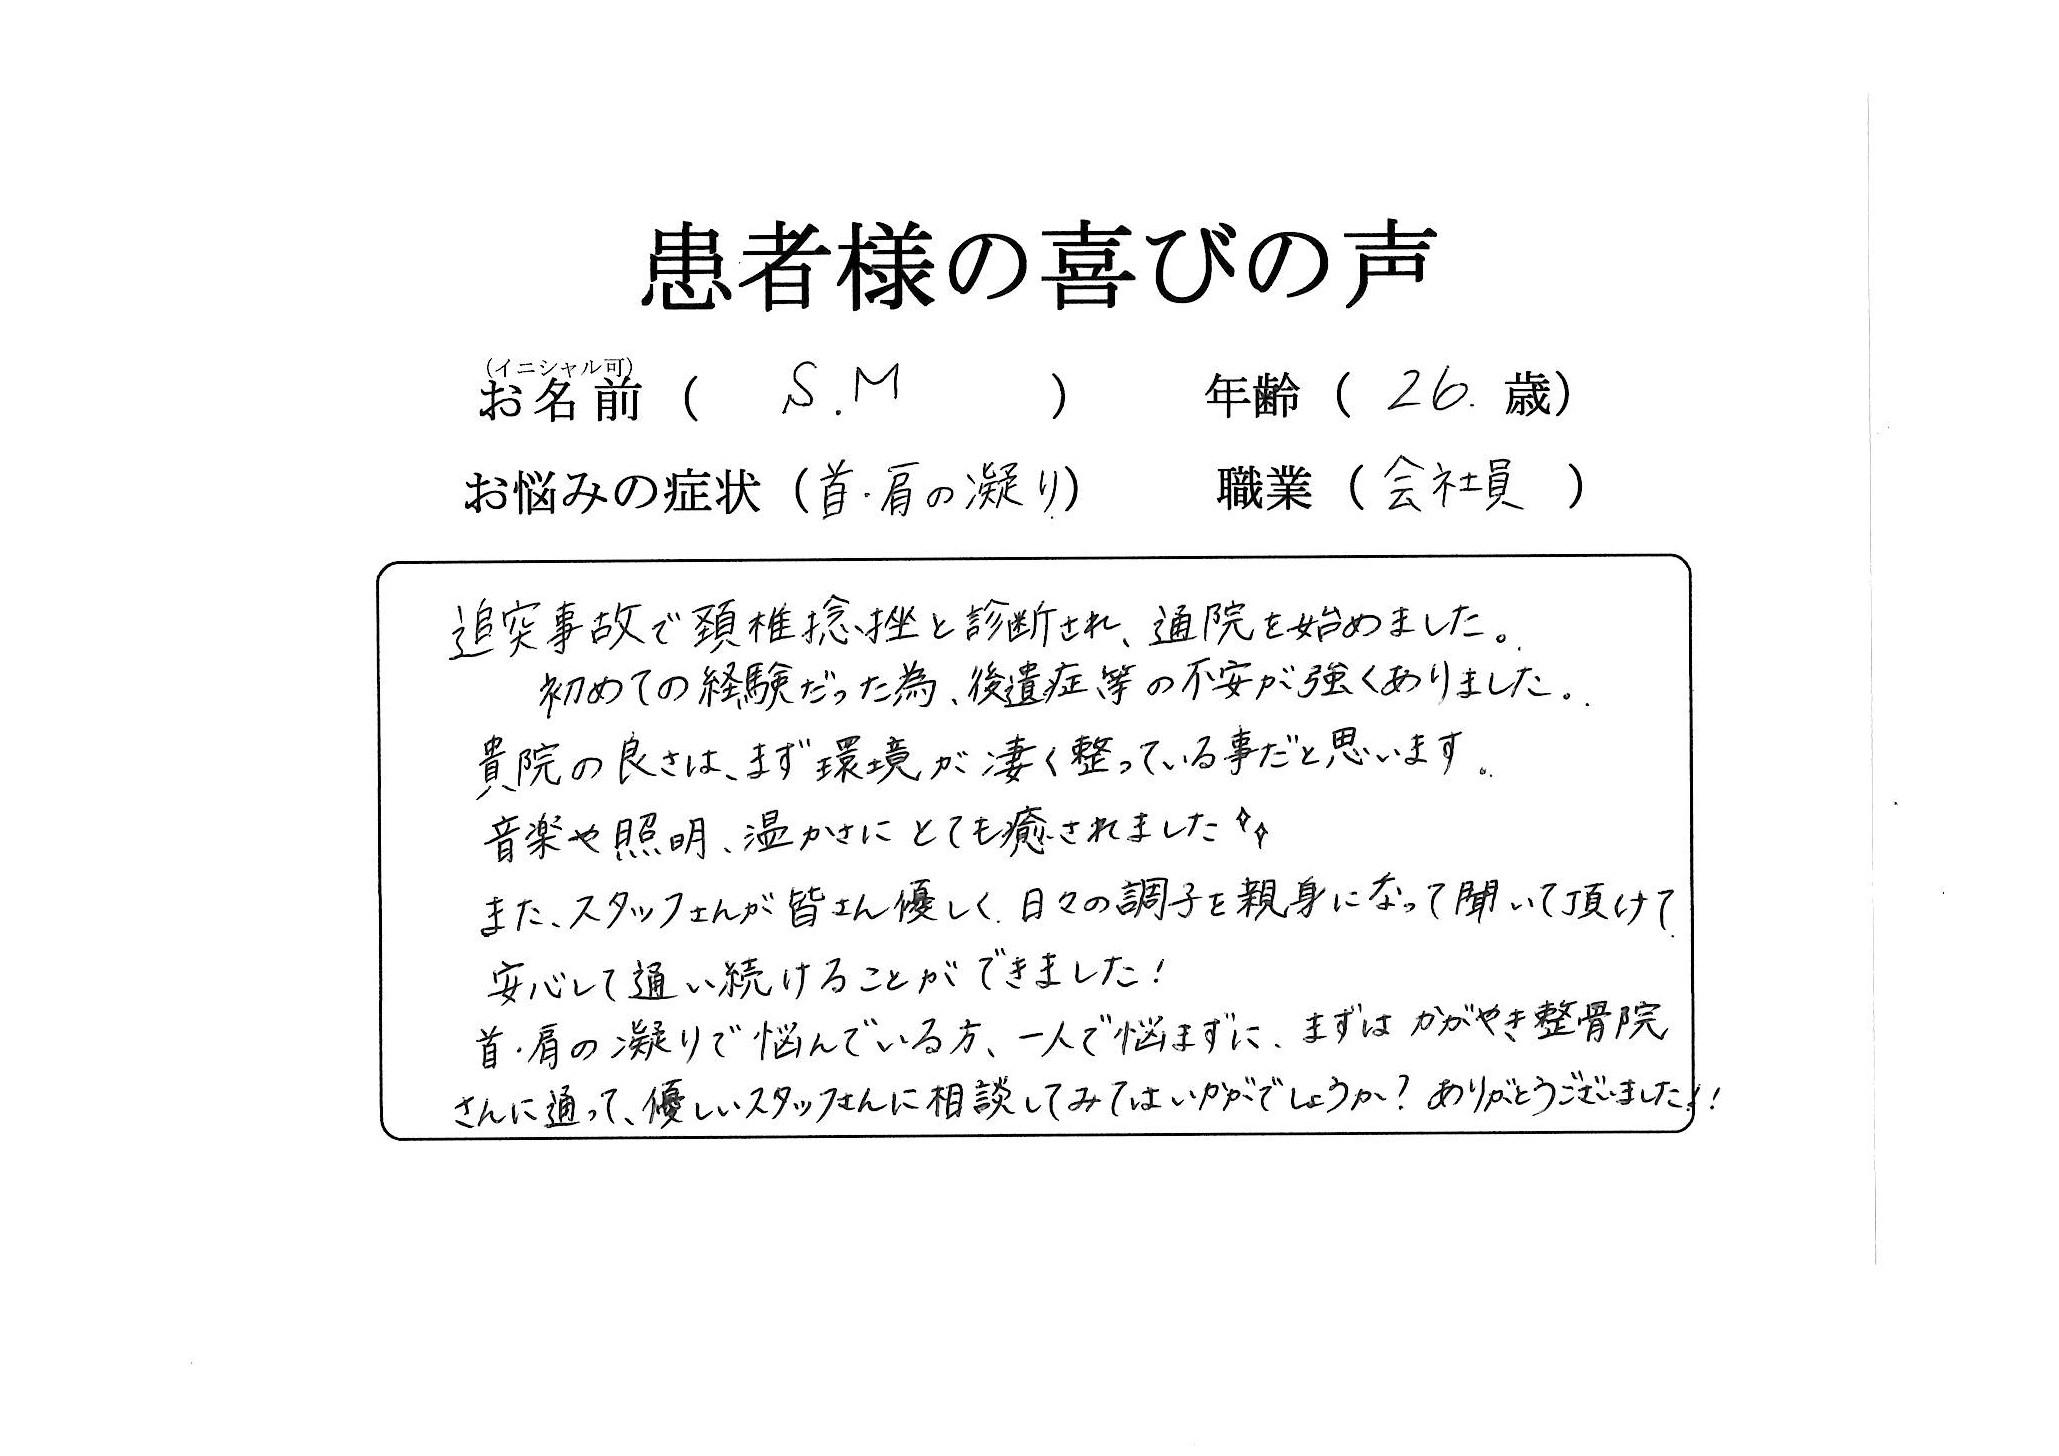 患者様の喜びの声
(イニシャル可)
お名前 ( S.M ) 年齢 ( 26. 歳)
お悩みの症状 (首・肩の凝り) 職業 ( 会社員 )
追突事故で頚椎捻挫と診断され、通院を始めました。
初めての経験だった為、後遺症等の不安が強くありました。
貴院の良さは、まず環境が凄く整っている事だと思います。
音楽や照明、温かさにとても癒されました✧✧
また、スタッフさんが皆さん優しく、日々の調子を親身になって聞いて頂けて
安心して通い続けることができました!
首・肩の凝りで悩んでいる方、一人で悩まずに、まずは かがやき整骨院
さんに通って、優しいスタッフさんに相談してみてはいかがでしょうか? ありがとうございました!!